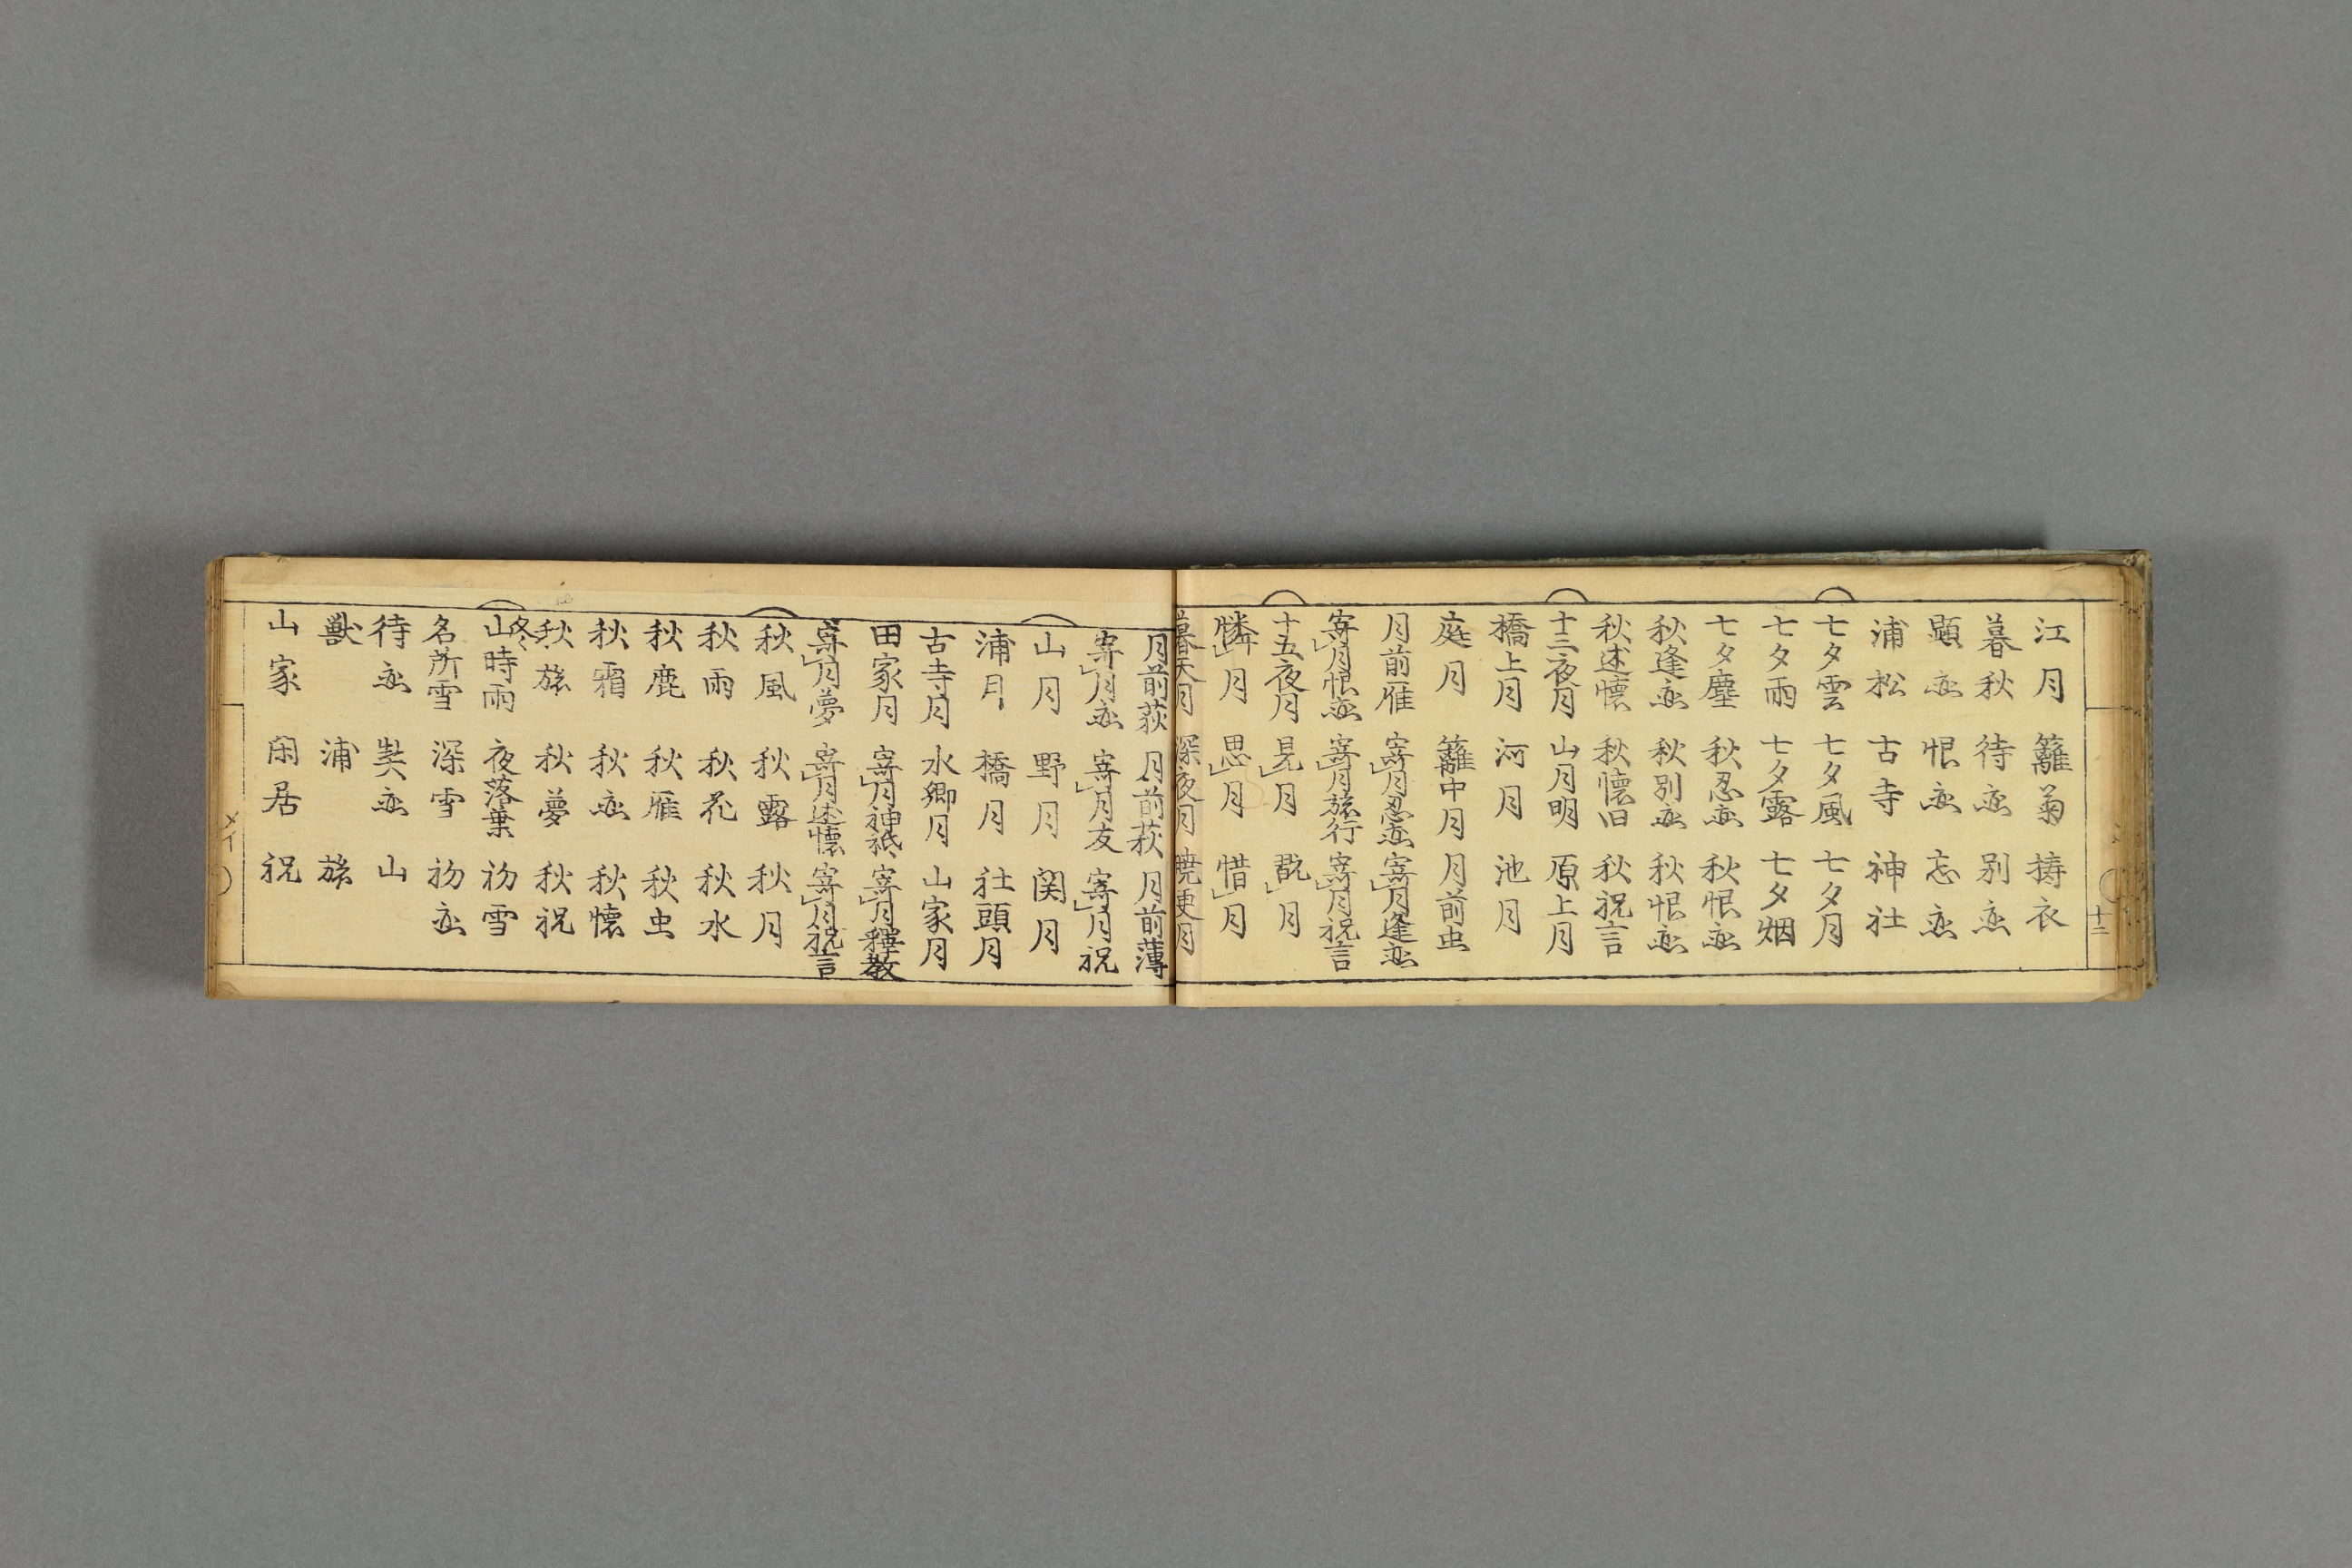 江月 籬菊 擣衣
暮秋 待恋 別恋
顕恋 恨恋 忘恋
浦松 古寺 神社
七夕雲 七夕風 七夕月
七夕雨 七夕露 七夕烟
七夕塵 秋忍恋 秋恨恋
秋逢恋 秋別恋 秋恨恋
秋述懐 秋懐旧 秋祝言
十三夜月 山月明 原上月
橋上月 河月 池月
庭月 籬中月 月前虫
月前雁 寄月忍恋 寄月逢恋
寄月恨恋 寄月旅行 寄月祝言
十五夜月 見月 翫月
憐月 思月 惜月
暮天月 深夜月 暁更月
十二
月前荻 月前萩 月前薄
寄月恋 寄月友 寄月祝
山月 野月 関月
浦月 橋月 社頭月
古寺月 水郷月 山家月
田家月 寄月神祇 寄月釋教
寄月夢 寄月述懐 寄月祝言
秋風 秋露 秋月
秋雨 秋花 秋水
秋鹿 秋雁 秋虫
秋霜 秋恋 秋懐
秋旅 秋夢 秋祝
冬
山時雨 夜落葉 初雪
名所雪 深雪 初恋
待恋 契恋 山
獣 浦 旅
山家 閑居 祝
メイ